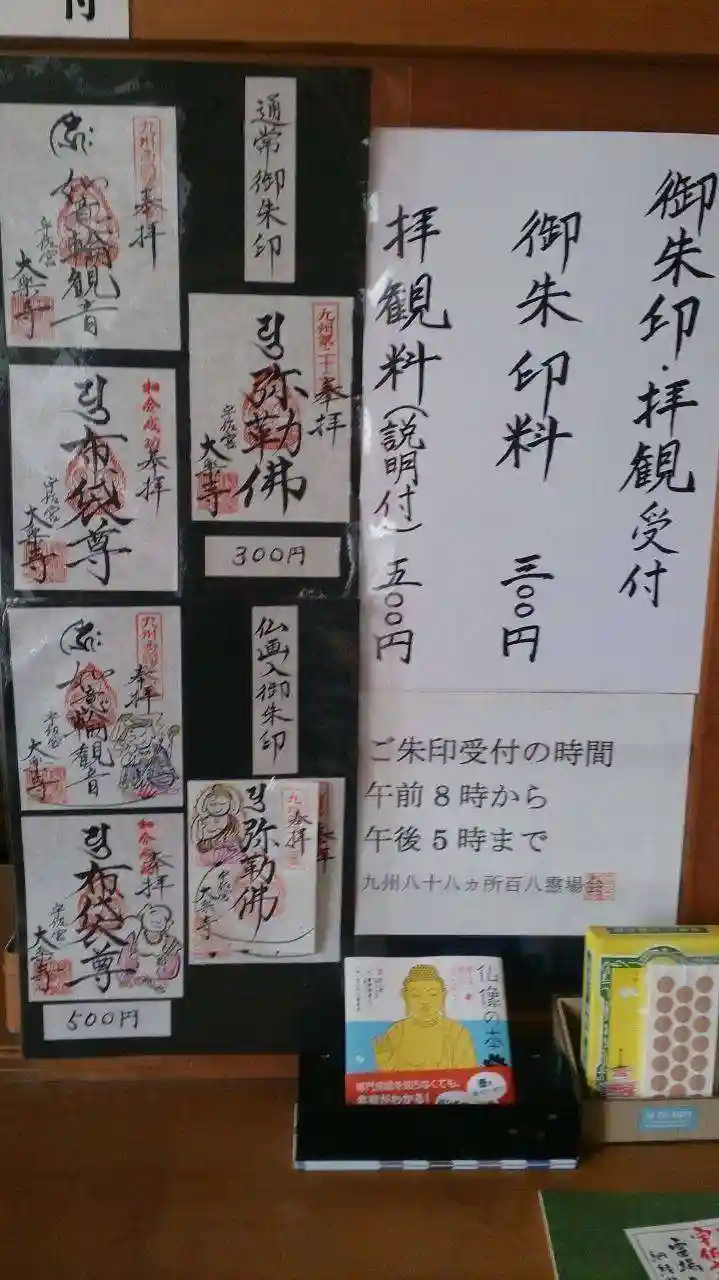 付
御朱印・拝観受付
御朱印料 三〇〇円
拝観料(説明付) 五〇〇円
ご朱印受付の時間
午前8時から
午後5時まで
九州八十八ヵ所百八霊場会
通常御朱印
奉拝
如意輪観音
宇佐宮
大楽寺
九州第二十二
奉拝
弥勒佛
宇佐宮
大楽寺
300円
奉拝
布袋尊
宇佐宮
大楽寺
仏画入御朱印
奉拝
如意輪観音
宇佐宮
大楽寺
奉拝
弥勒佛
宇佐宮
大楽寺
奉拝
布袋尊
宇佐宮
大楽寺
500円
仏像の本
専門用語を知らなくても、
名前がわかる!
霊場